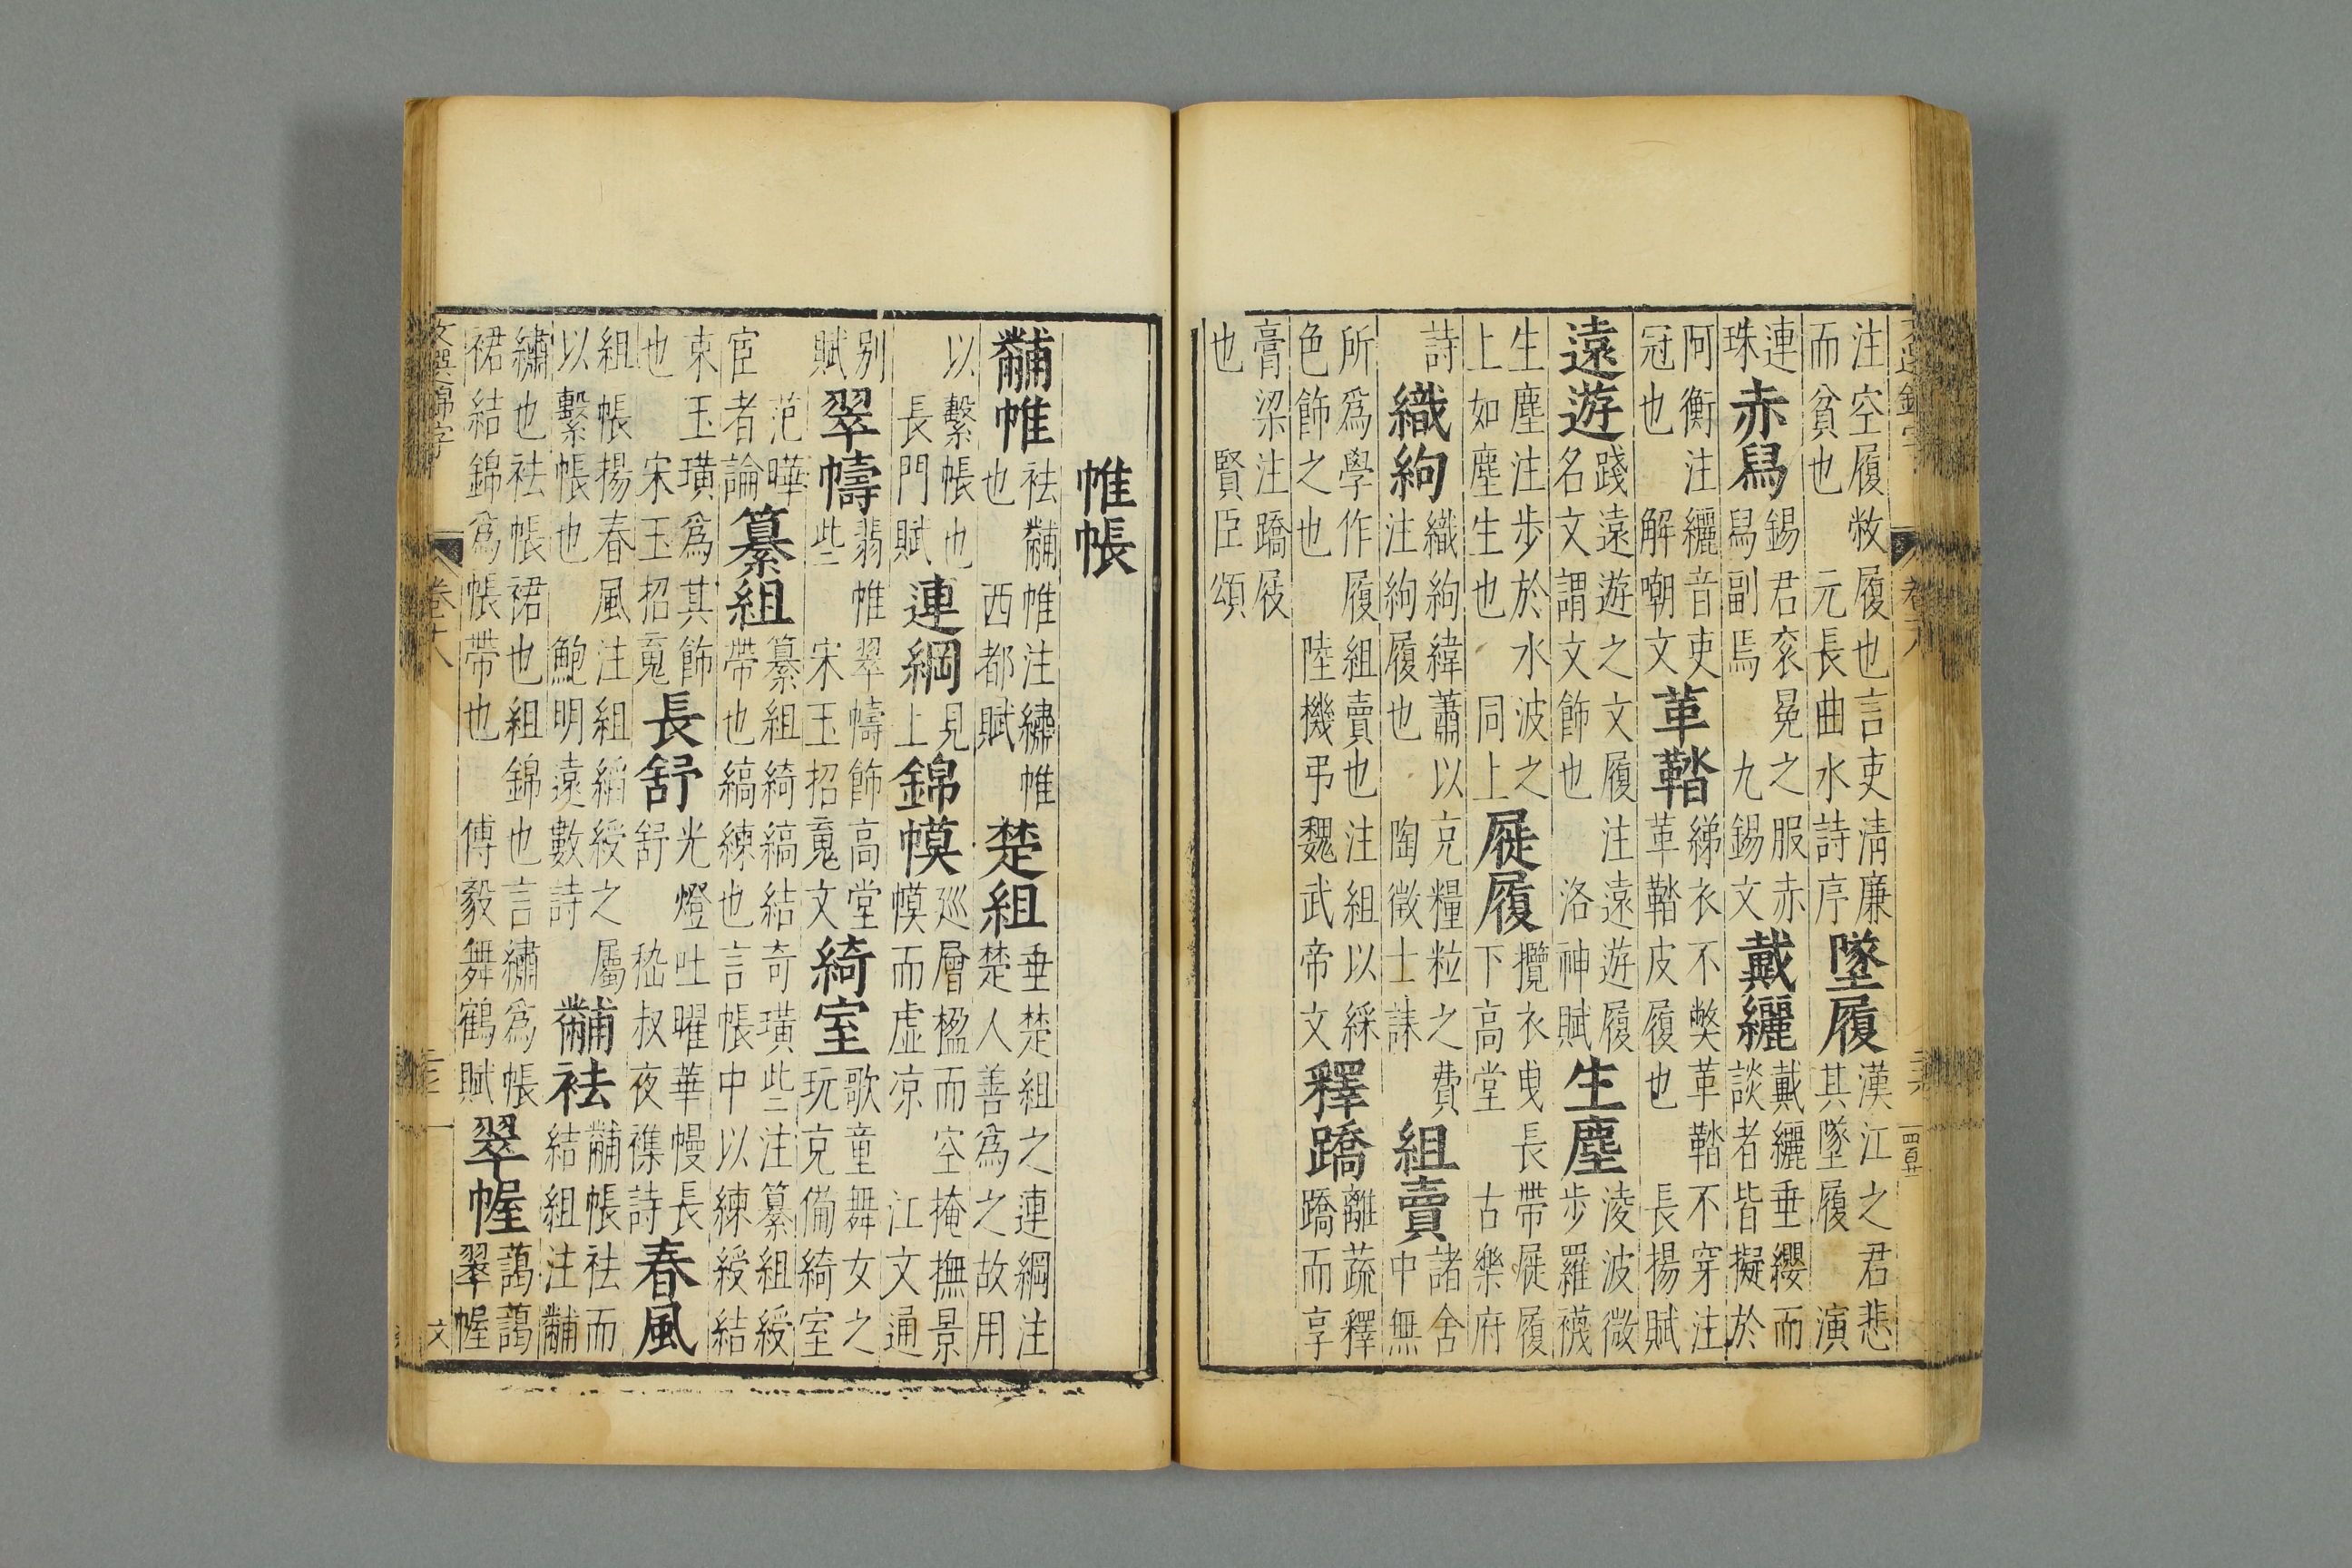 注空履敝履也言吏清廉
而貧也 元長曲水詩序
墜履
漢江之君悲
其墜履 演
連
珠
赤舄
錫君衮冕之服赤
舄副焉 九錫文
戴纚
戴纚垂纓而
談者皆擬於
阿衡注纚音吏
冠也 解嘲文
革鞜
綈衣不弊革鞜不穿注
革鞜皮履也 長揚賦
遠遊
踐遠遊之文履注遠遊履
名文謂文飾也 洛神賦
生塵
淩波微
步羅襪
生塵注步於水波之
上如塵生也 同上
屣履
攬衣曳長帶屣履
下高堂 古樂府
詩
織絇
織絇緯蕭以充糧粒之費
注絇履也 陶徵士誄
組賣
諸舍
中無
所爲學作履組賣也注組以綵
色飾之也 陸機弔魏武帝文
釋蹻
離蔬釋
蹻而享
膏粱注蹻屐
也 賢臣頌
帷帳
黼帷
袪黼帷注繡帷
也 西都賦
楚組
垂楚組之連綱注
楚人善爲之故用
以繫帳也
長門賦
連綱
見
上
錦幙
巡層楹而空掩撫景
幙而虛凉 江文通
別
賦
翠幬
翡帷翠幬飾高堂
些 宋玉招䰟文
綺室
歌童舞女之
玩充備綺室
范曄
宦者論
纂組
纂組綺縞結奇璜些注纂組綬
帶也縞練也言帳中以練綬結
束玉璜爲其飾
也 宋玉招䰟
長舒
光燈吐曜華幔長
舒 嵇叔夜襍詩
春風
組帳揚春風注組緺綬之屬
以繫帳也 鮑明遠數詩
黼袪
黼帳袪而
結組注黼
繡也袪帳裙也組錦也言繡爲帳
裙結錦爲帳帶也 傅毅舞鶴賦
翠幄
藹藹
翠幄
文選錦字
卷十八